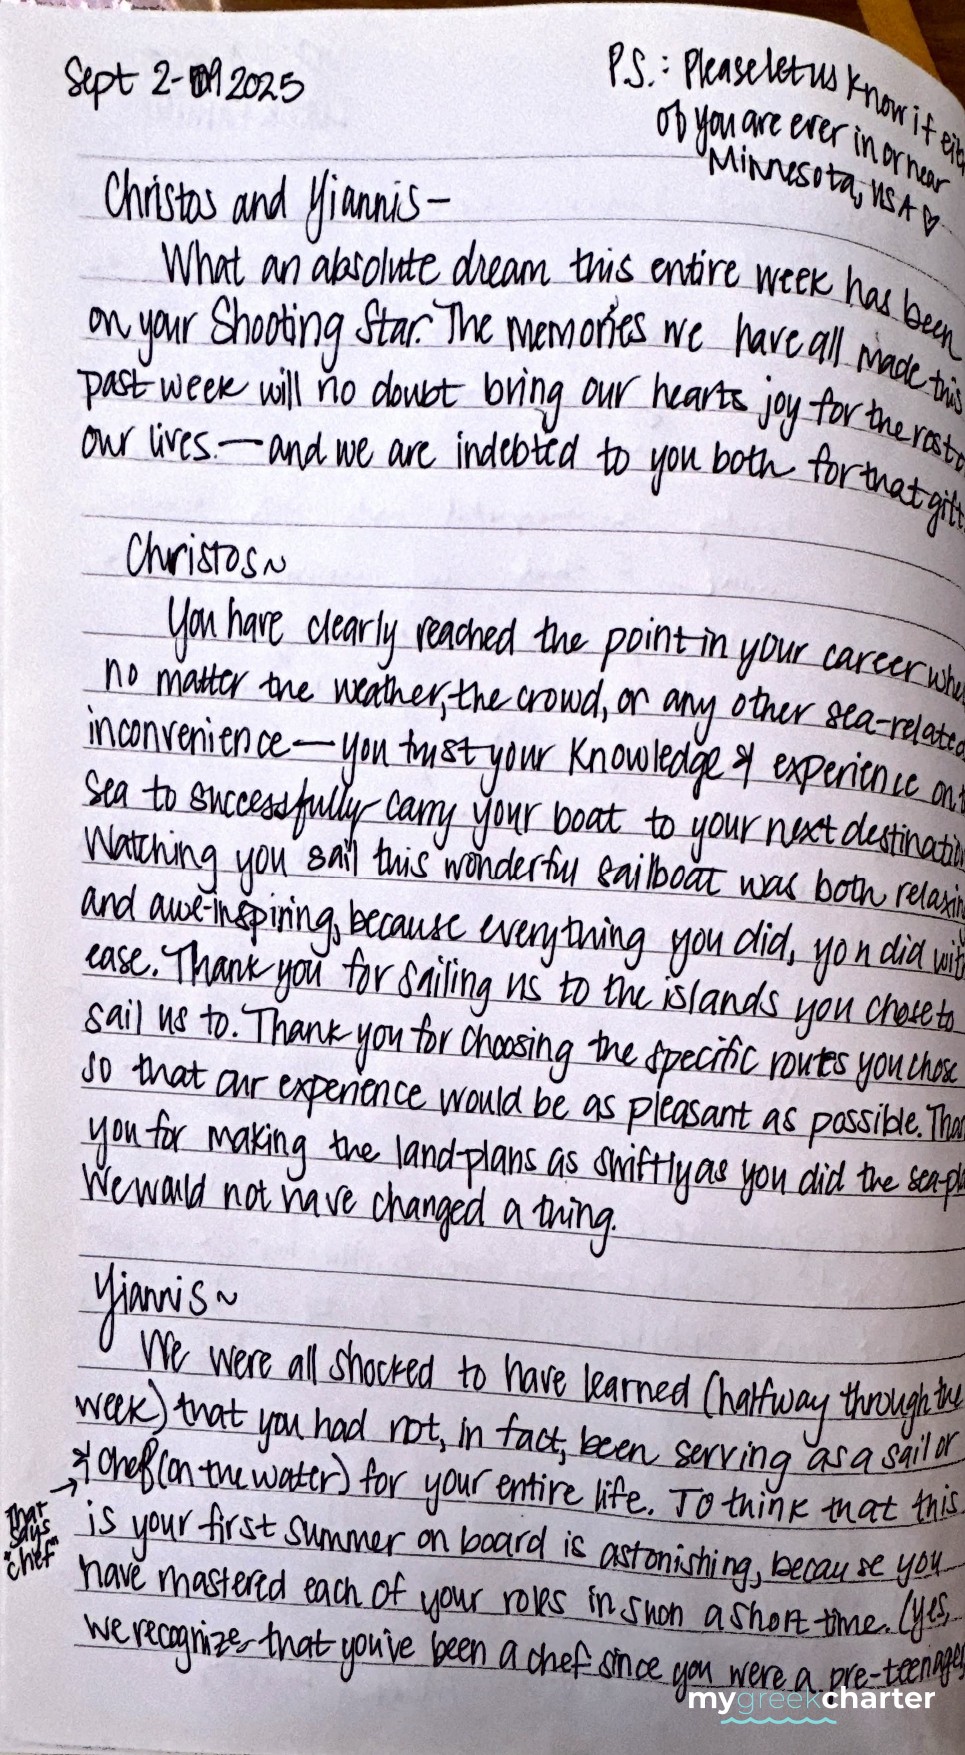 Sept 2-09 2025
P.S.: Please let us know if
of you are ever in or near
Minnesota, USA ♡
Christos and Yiannis—
What an absolute dream this entire week has been
on your Shooting Star. The memories we have all made this
past week will no doubt bring our hearts joy for the rest
our lives.—and we are indebted to you both for that gift
Christos~
You have clearly reached the point in your career
no matter the weather, the crowd, or any other sea-related
inconvenience—you trust your knowledge & experience on
sea to successfully carry your boat to your next
Watching you sail this wonderful sailboat was both
and awe-inspiring, because everything you did, you did
ease. Thank you for sailing us to the islands you chose to
sail us to. Thank you for choosing the specific routes you chose
so that our experience would be as pleasant as possible.
you for making the land-plans as swiftly as you did the
We would not have changed a thing.
Yiannis~
We were all shocked to have learned (halfway through the
week) that you had not, in fact, been serving as a sailor
& chef (on the water) for your entire life. To think that this
→
That
says
"chef"
is your first summer on board is astonishing, because you
have mastered each of your roles in such a short time. (yes,
we recognize that you've been a chef since you were a
mygreekcharter